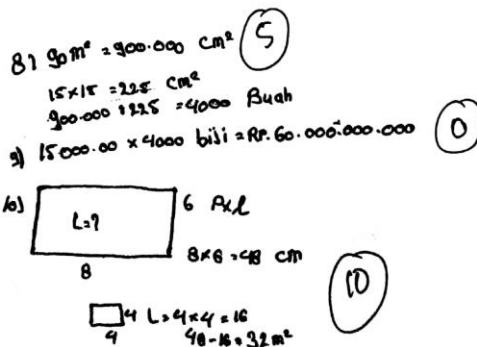 8) 90 m² = 900.000 cm² 5
15×15 = 225 cm²
900.000 : 225 = 4000 Buah
9) 15000.00 × 4000 biji = RP. 60.000.000.000 0
10) L=? 6 P×l
8 8×6 = 48 cm
10
4 L = 4×4 = 16
4 48-16 = 32 m²